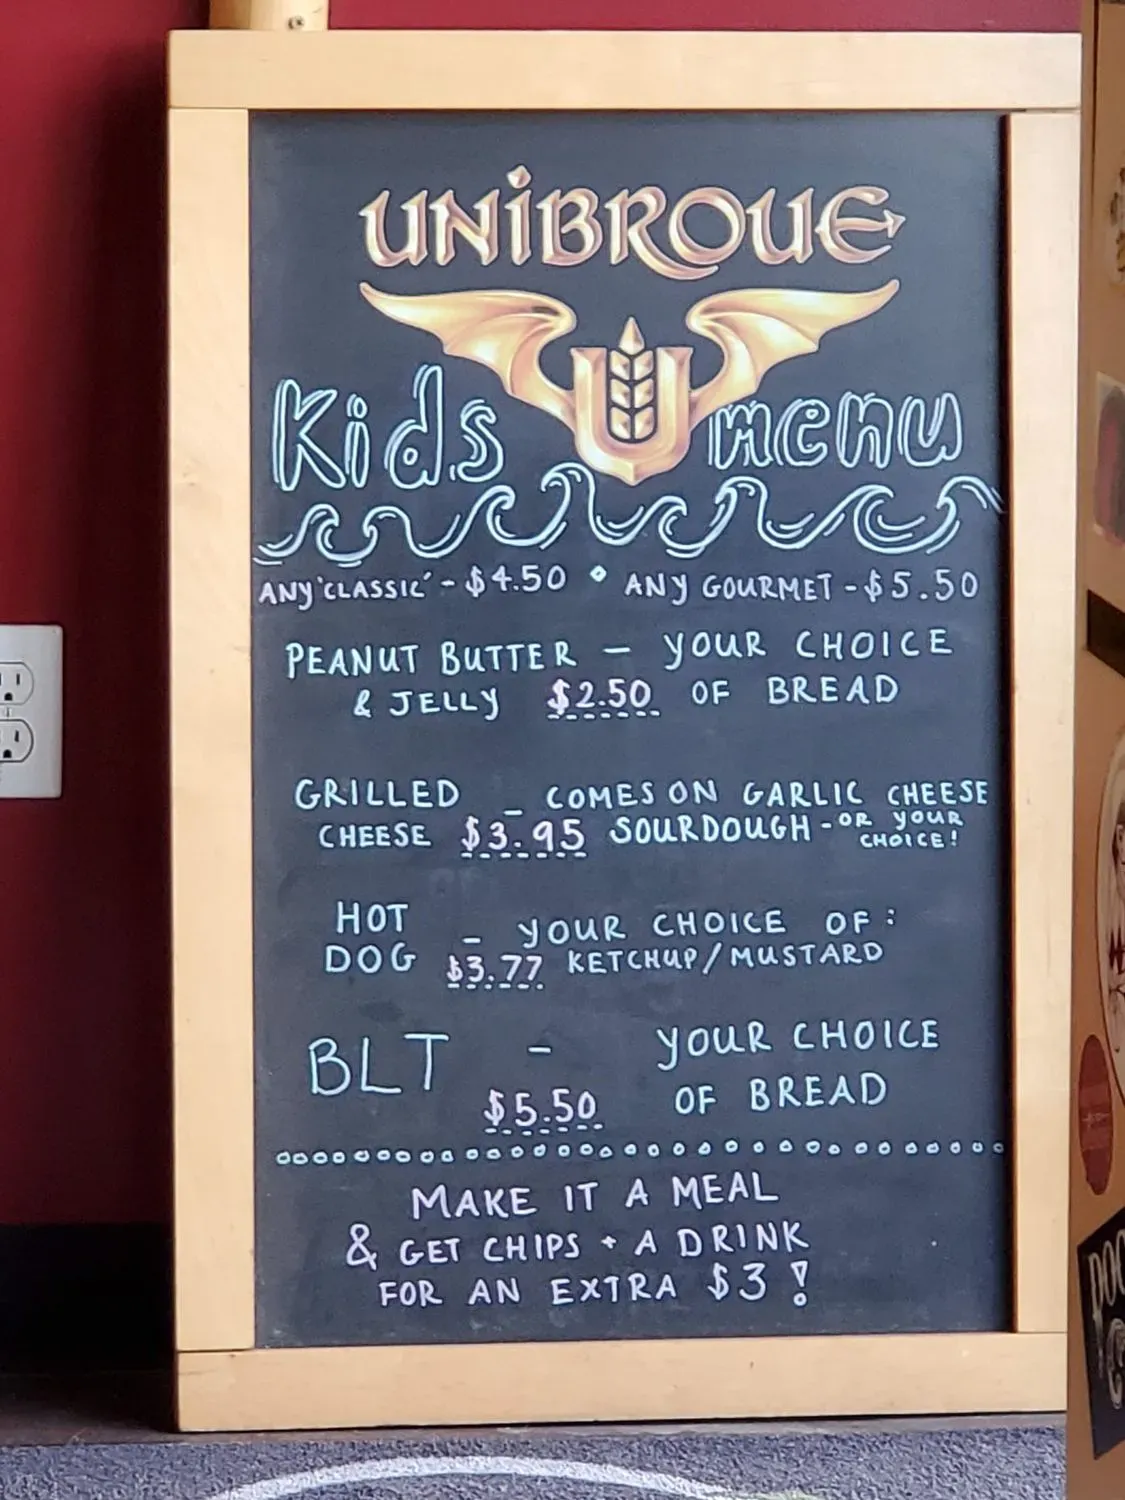 UNIBROUE
Kids menu
ANY 'CLASSIC' - $4.50 • ANY GOURMET - $5.50
PEANUT BUTTER - YOUR CHOICE
& JELLY $2.50 OF BREAD
GRILLED - COMES ON GARLIC CHEESE
CHEESE $3.95 SOURDOUGH - OR YOUR
CHOICE!
HOT
DOG - YOUR CHOICE OF:
$3.77 KETCHUP/MUSTARD
BLT - YOUR CHOICE
$5.50 OF BREAD
MAKE IT A MEAL
& GET CHIPS + A DRINK
FOR AN EXTRA $3!